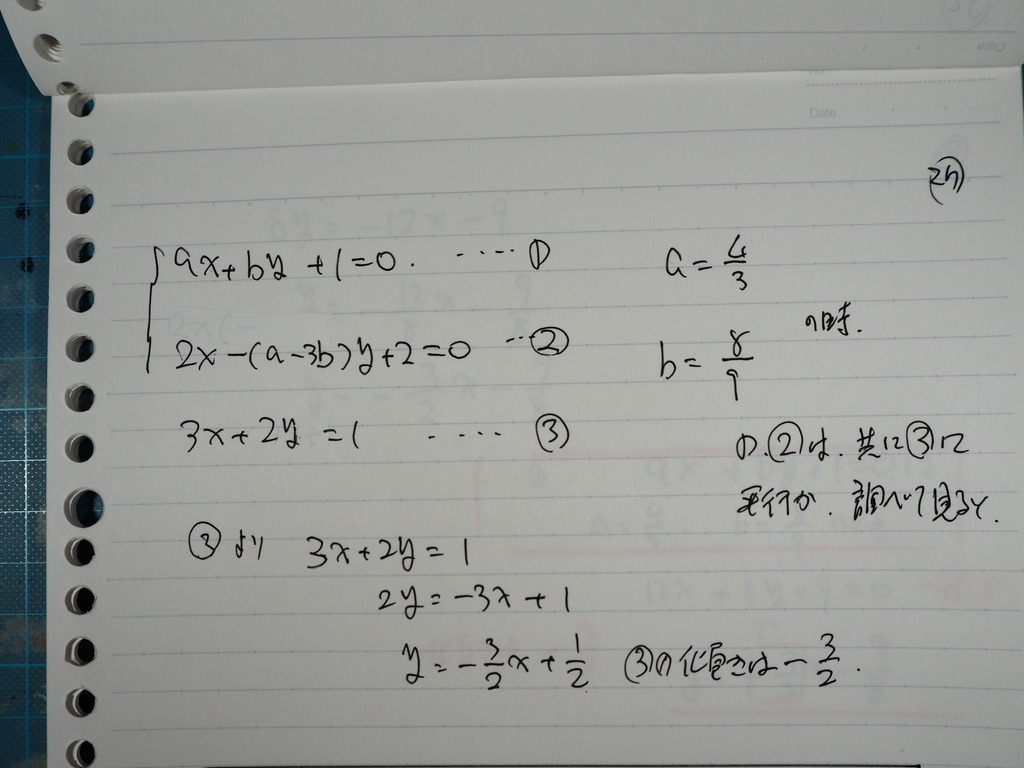 Date
㉔
ax+by+1=0. ‥‥‥ ①
a=4/3
2x-(a-3b)y+2=0 ‥②
b=8/9
の時.
3x+2y=1 ‥‥ ③
①.②は.共に③に
平行か.調べて見ると.
③より 3x+2y=1
2y=-3x+1
y=-3/2x+1/2 ③の傾きは-3/2.